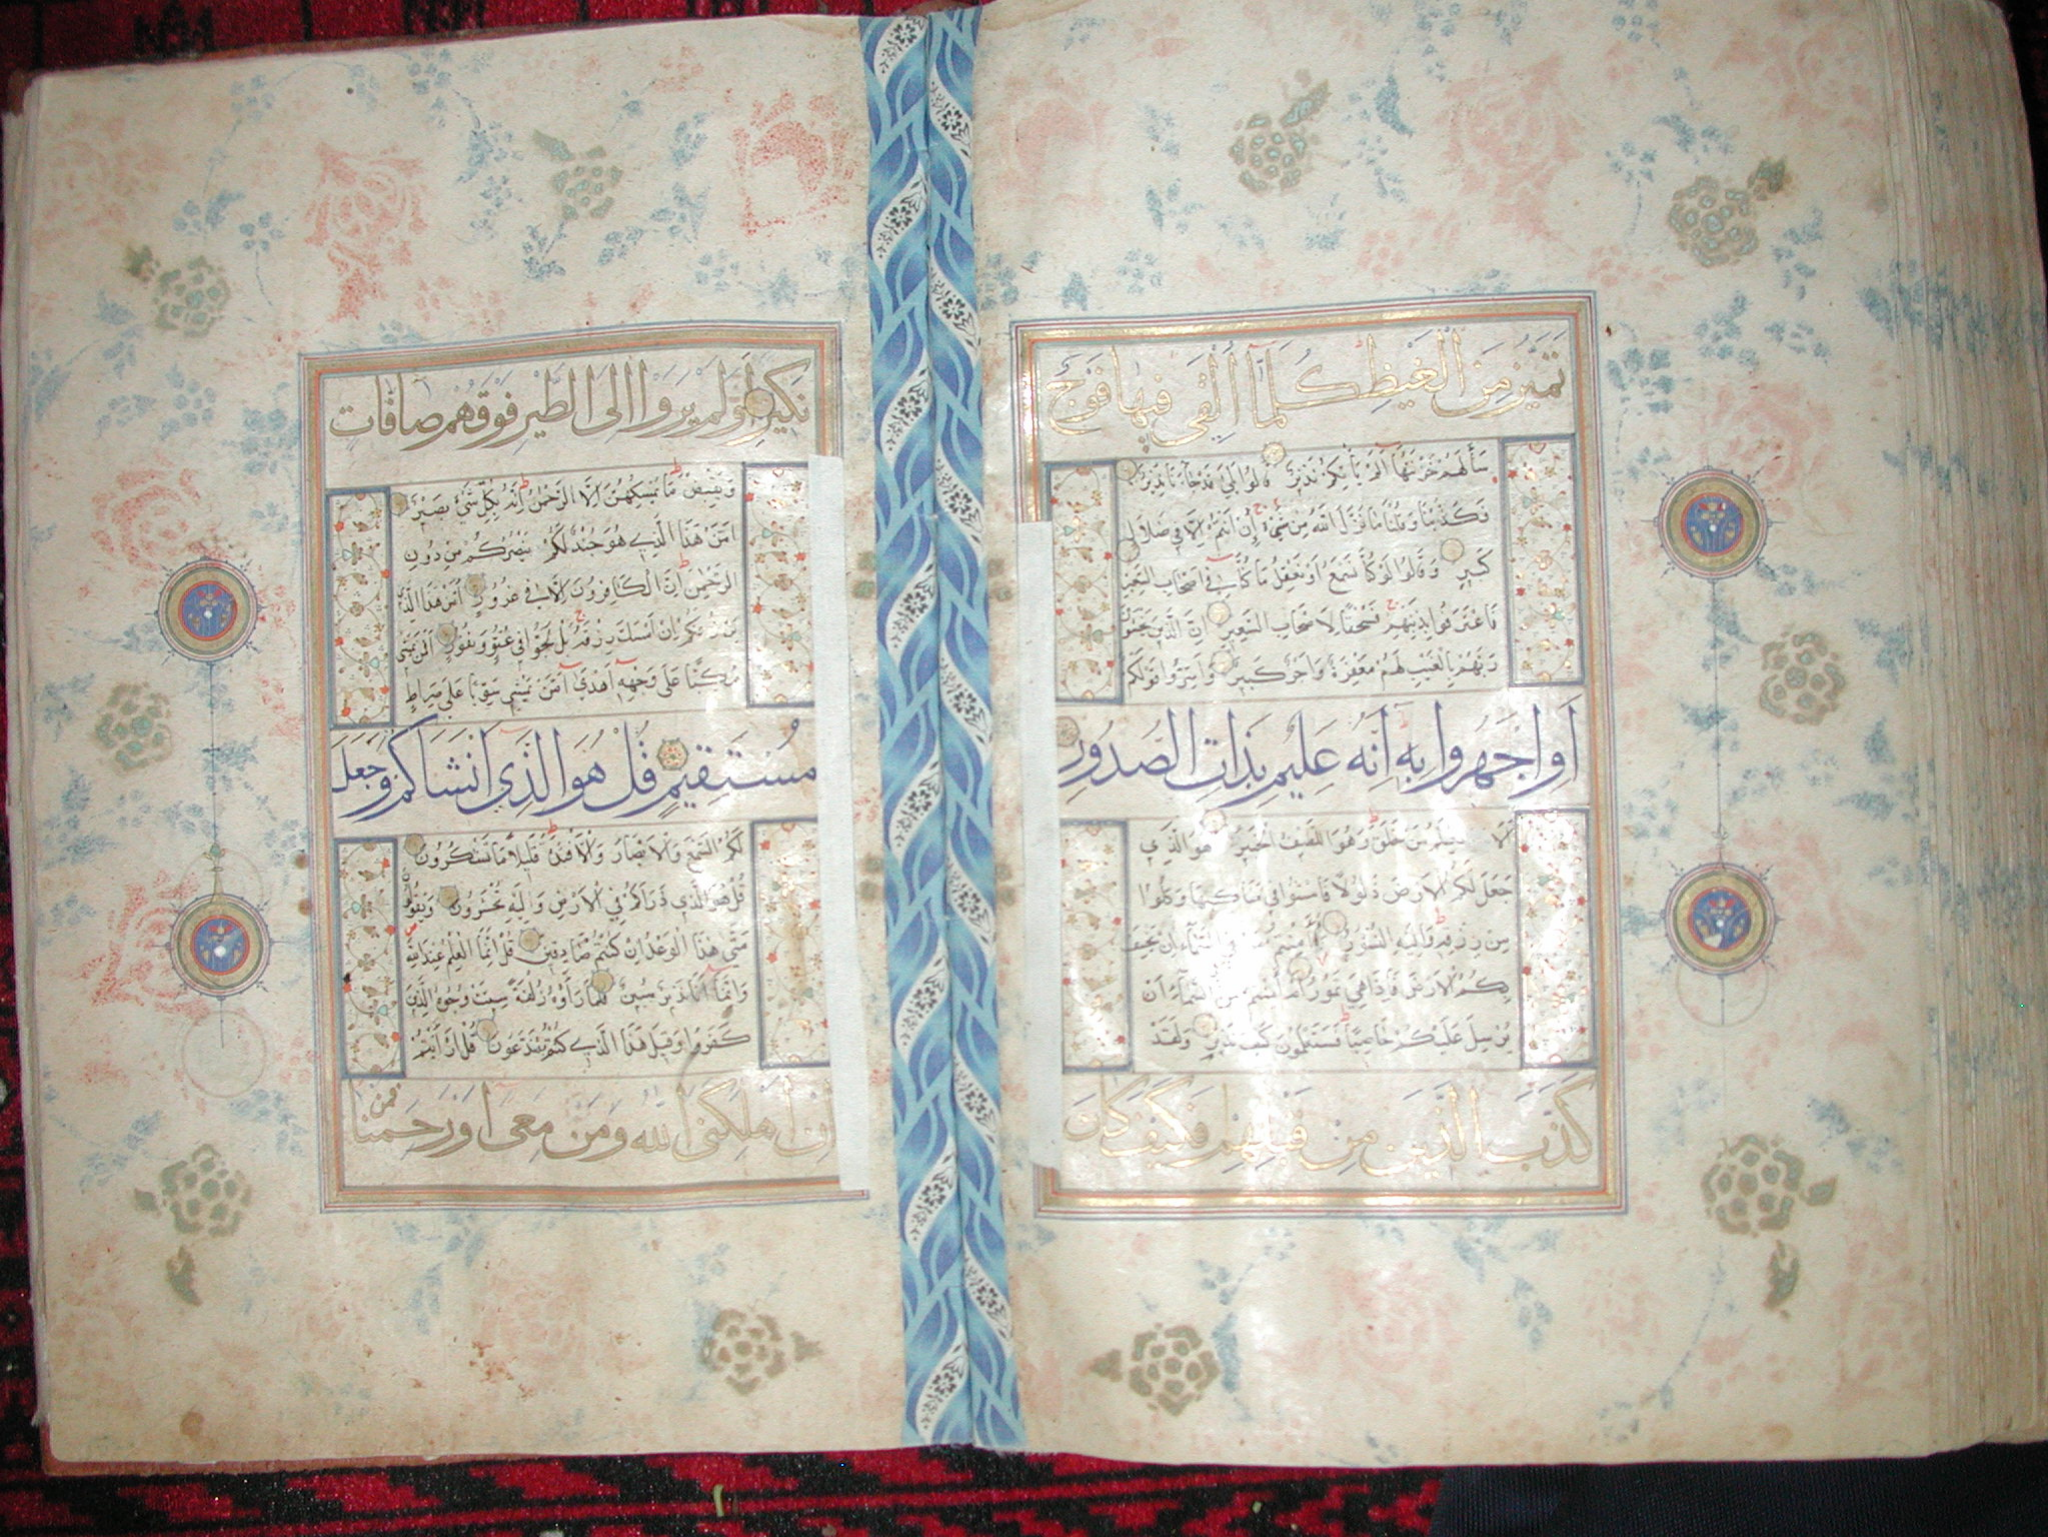 تميز من الغيظ كلما القى فيها فوج
سألهم خزنتها ألم يأتكم نذير قالوا بلى قد جاءنا نذير
فكذبنا وقلنا ما نزل الله من شئ إن أنتم إلا في ضلال
كبير وقالوا لو كنا نسمع أو نعقل ما كنا في أصحاب السعير
فاعترفوا بذنبهم فسحقا لأصحاب السعير إن الذين يخشون
ربهم بالغيب لهم مغفرة وأجر كبير وأسروا قولكم
أو اجهروا به انه عليم بذات الصدور
ألا يعلم من خلق وهو اللطيف الخبير هو الذي
جعل لكم الأرض ذلولا فامشوا في مناكبها وكلوا
من رزقه وإليه النشور أأمنتم من في السماء ان يخسف
بكم الأرض فإذا هي تمور أم أمنتم من في السماء أن
يرسل عليكم حاصبا فستعلمون كيف نذير ولقد
كذب الذين من قبلهم فكيف كان
نكير اولم يروا الى الطير فوقهم صافات
ويقبضن ما يمسكهن إلا الرحمن إنه بكل شئ بصير
امن هذا الذي هو جند لكم ينصركم من دون
الرحمن إن الكافرون إلا في غرور امن هذا الذي
يرزقكم إن أمسك رزقه بل لجوا في عتو ونفور افمن يمشي
مكبا على وجهه أهدى امن يمشي سويا على صراط
مستقيم قل هو الذي انشاكم وجعل
لكم السمع والأبصار والأفئدة قليلا ما تشكرون
قل هو الذي ذرأكم في الأرض وإليه تحشرون ويقولون
متى هذا الوعد إن كنتم صادقين قل إنما العلم عند الله
وإنما أنا نذير مبين فلما رأوه زلفة سيئت وجوه الذين
كفروا وقيل هذا الذي كنتم به تدعون قل أرأيتم
ان اهلكنى الله ومن معى او رحمنا فمن